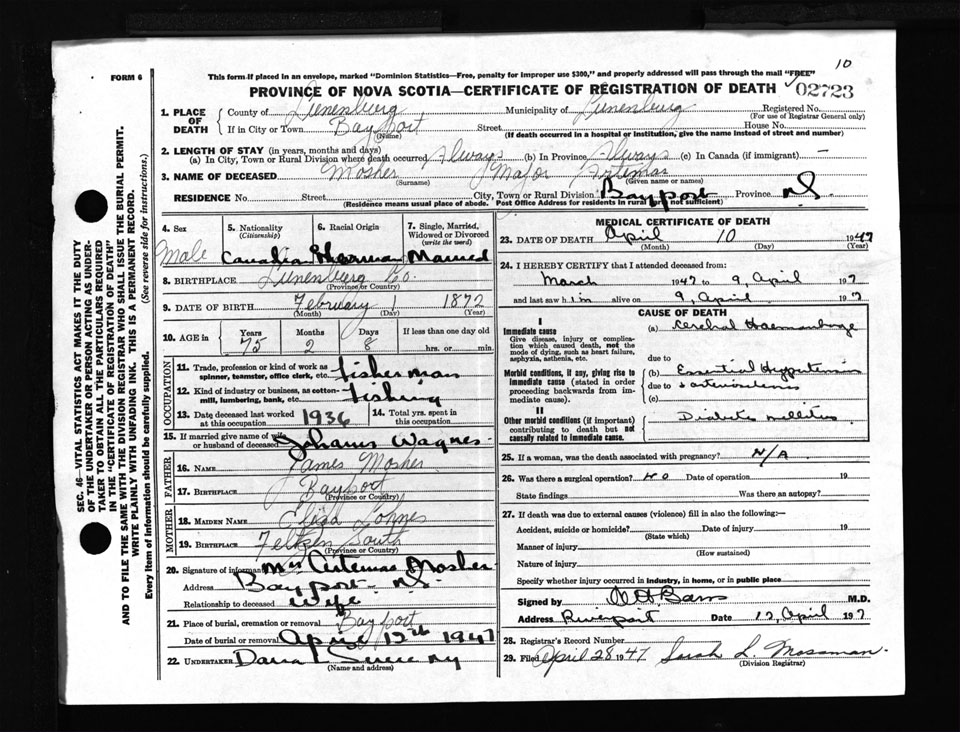 10
FORM 6
This form if placed in an envelope, marked "Dominion Statistics—Free, penalty for improper use $300," and properly addressed will pass through the mail "FREE"
PROVINCE OF NOVA SCOTIA—CERTIFICATE OF REGISTRATION OF DEATH
02723
1. PLACE OF DEATH
County of Lunenburg Municipality of Lunenburg Registered No.
(For use of Registrar General only)
If in City or Town Bayport Street House No.
(Name) (If death occurred in a hospital or institution, give the name instead of street and number)
2. LENGTH OF STAY (in years, months and days)
(a) In City, Town or Rural Division where death occurred Always (b) In Province Always (c) In Canada (if immigrant) —
3. NAME OF DECEASED Mosher Major Artemas
(Surname) (Given name or names)
RESIDENCE No. Street City, Town or Rural Division Bayport Province NS
(Residence means usual place of abode. Post Office Address for residents in rural parts not sufficient)
4. Sex
Male
5. Nationality
(Citizenship)
6. Racial Origin
German
7. Single, Married, Widowed or Divorced
(write the word)
Married
8. BIRTHPLACE Lunenburg Co.
(Province or Country)
9. DATE OF BIRTH February 1 1872
(Month) (Day) (Year)
10. AGE in
Years Months Days If less than one day old
75 2 8 hrs. or min.
OCCUPATION
11. Trade, profession or kind of work as spinner, teamster, office clerk, etc. fisherman
12. Kind of industry or business, as cotton-mill, lumbering, bank, etc. fishing
13. Date deceased last worked at this occupation 1936
14. Total yrs. spent in this occupation
15. If married give name of wife or husband of deceased
FATHER
16. NAME James Mosher
17. BIRTHPLACE Bayport
(Province or Country)
MOTHER
18. MAIDEN NAME Eliza Lohnes
19. BIRTHPLACE South
(Province or Country)
20. Signature of informant Mrs Artemas Mosher
Address Bayport NS
Relationship to deceased wife
21. Place of burial, cremation or removal Bayport
Date of burial or removal April 12th 1947
22. UNDERTAKER
(Name and address)
MEDICAL CERTIFICATE OF DEATH
23. DATE OF DEATH April 10 1947
(Month) (Day) (Year)
24. I HEREBY CERTIFY that I attended deceased from:
March 1947 to 9, April 1947
and last saw him alive on 9, April 1947
CAUSE OF DEATH
I
Immediate cause
Give disease, injury or complication which caused death, not the mode of dying, such as heart failure, asphyxia, asthenia, etc.
(a) Cerebral Haemorrhage
due to
Morbid conditions, if any, giving rise to immediate cause (stated in order proceeding backwards from immediate cause).
(b) Essential Hypertension
due to
(c)
II
Other morbid conditions (if important) contributing to death but not causally related to immediate cause.
Diabetes mellitus
25. If a woman, was the death associated with pregnancy? N/A
26. Was there a surgical operation? no Date of operation 19
State findings Was there an autopsy?
27. If death was due to external causes (violence) fill in also the following:—
Accident, suicide or homicide? Date of injury 19
(State which)
Manner of injury
(How sustained)
Nature of injury
Specify whether injury occurred in industry, in home, or in public place
Signed by M.D.
Address Riverport Date 12, April 1947
28. Registrar's Record Number
29. Filed April 28 1947 Sarah L. Mossman
(Division Registrar)
SEC. 46—VITAL STATISTICS ACT MAKES IT THE DUTY
OF THE UNDERTAKER OR PERSON ACTING AS UNDERTAKER TO OBTAIN ALL THE PARTICULARS REQUIRED
IN THE "CERTIFICATE OF REGISTRATION OF DEATH"
AND TO FILE THE SAME WITH THE DIVISION REGISTRAR WHO SHALL ISSUE THE BURIAL PERMIT.
WRITE PLAINLY WITH UNFADING INK. THIS IS A PERMANENT RECORD.
Every item of information should be carefully supplied. (See reverse side for instructions.)